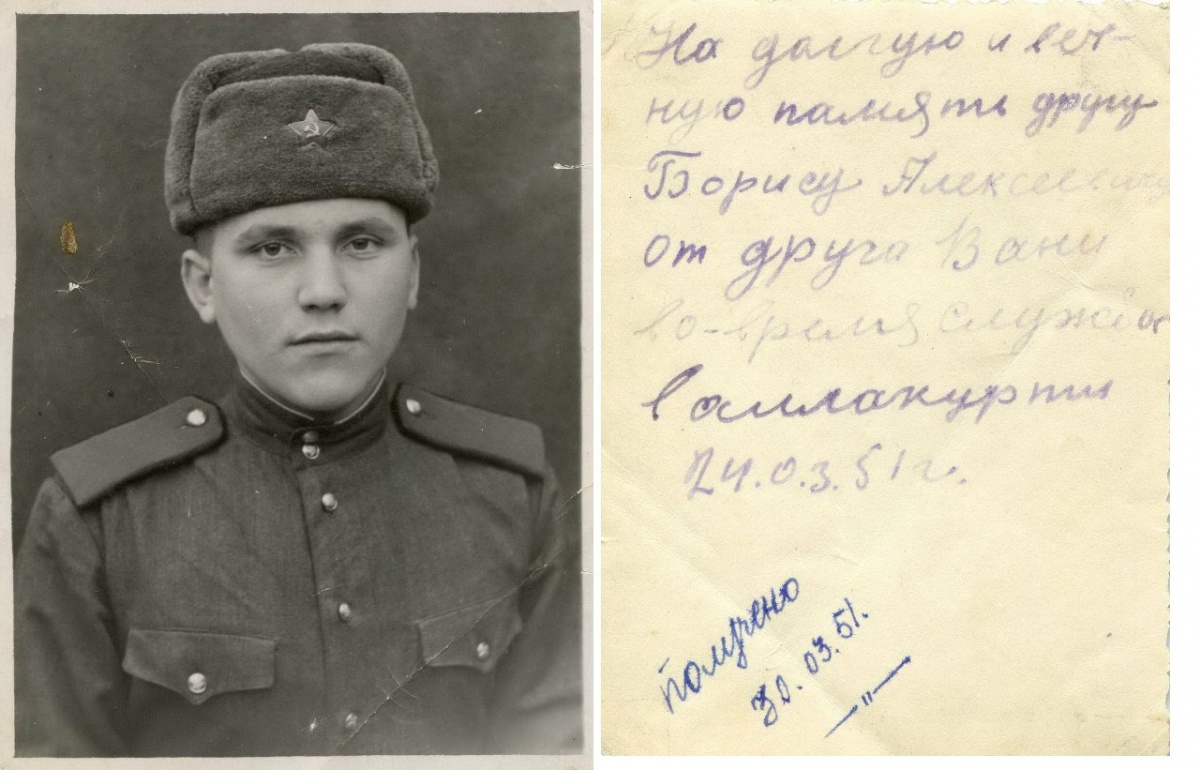 На долгую и веч-
ную память другу
Борису Алексеевичу
от друга Вани
во-время службы
в аллакуртти
24.03.51г.
получено
30.03.51.
—"—